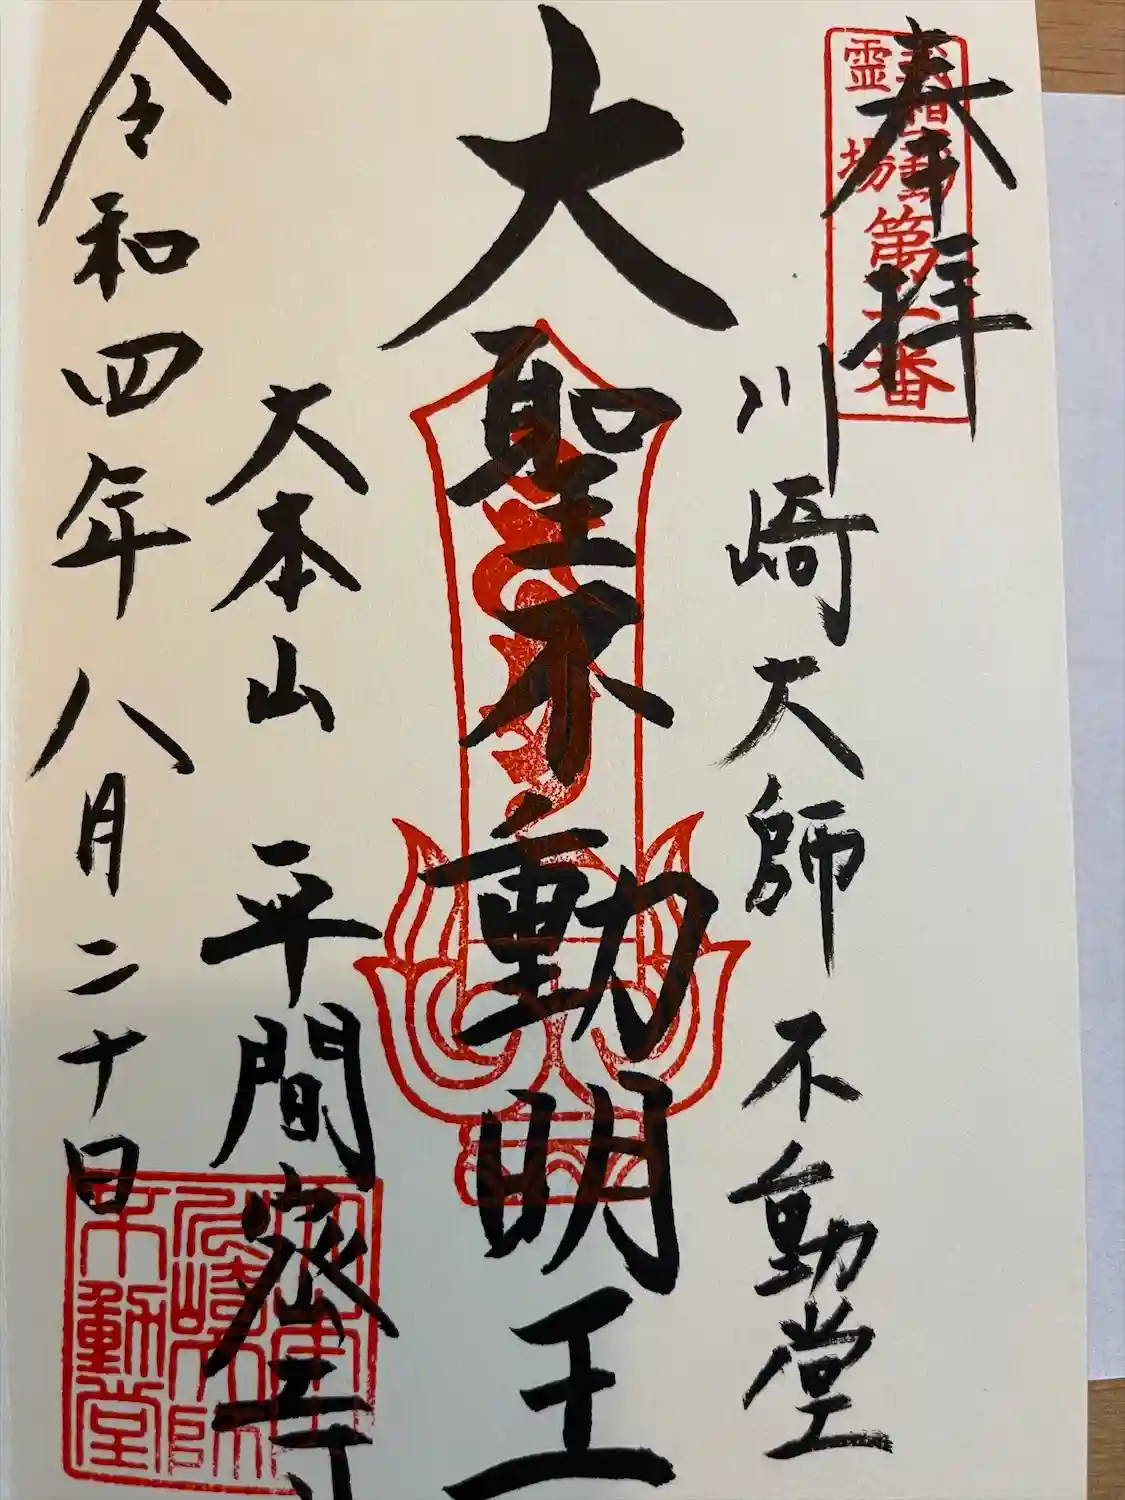 奉拝
霊場
川崎大師 不動堂
大聖不動明王
大本山 平間寺
令和四年 八月二十日
川崎大師
不動堂